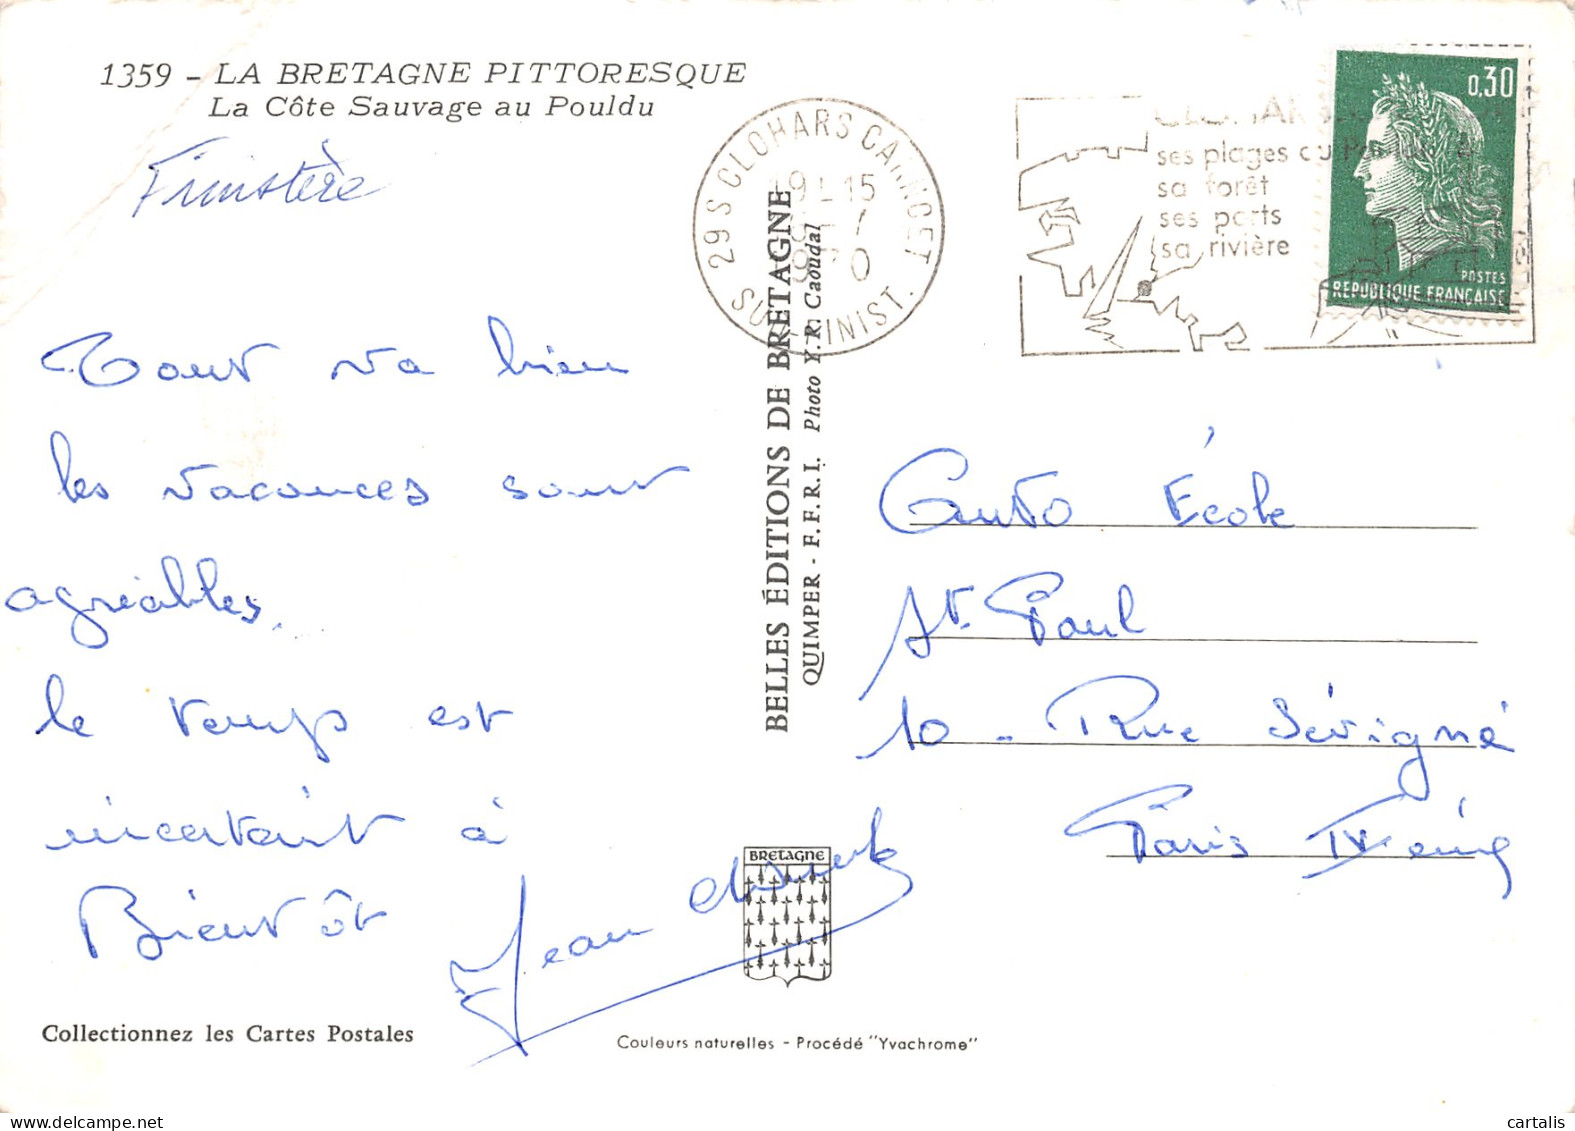 1359 - LA BRETAGNE PITTORESQUE
La Côte Sauvage au Pouldu
Finistère
Tout va bien
les vacances sont
agréables.
le temps est
incertain à
Bientôt
Jean
Collectionnez les Cartes Postales
BELLES ÉDITIONS DE BRETAGNE
QUIMPER - F.F.R.I. Photo Y.R. Caoudal
BRETAGNE
Couleurs naturelles - Procédé "Yvachrome"
29 S CLOHARS CARNOET
19 H 15
1970
SUD FINIST.
ses plages du
sa forêt
ses ports
sa rivière
0,30
POSTES
REPUBLIQUE FRANÇAISE
Auto École
St. Paul
10 - Rue Sévigné
Paris IV eme
cartalis
delcampe.net